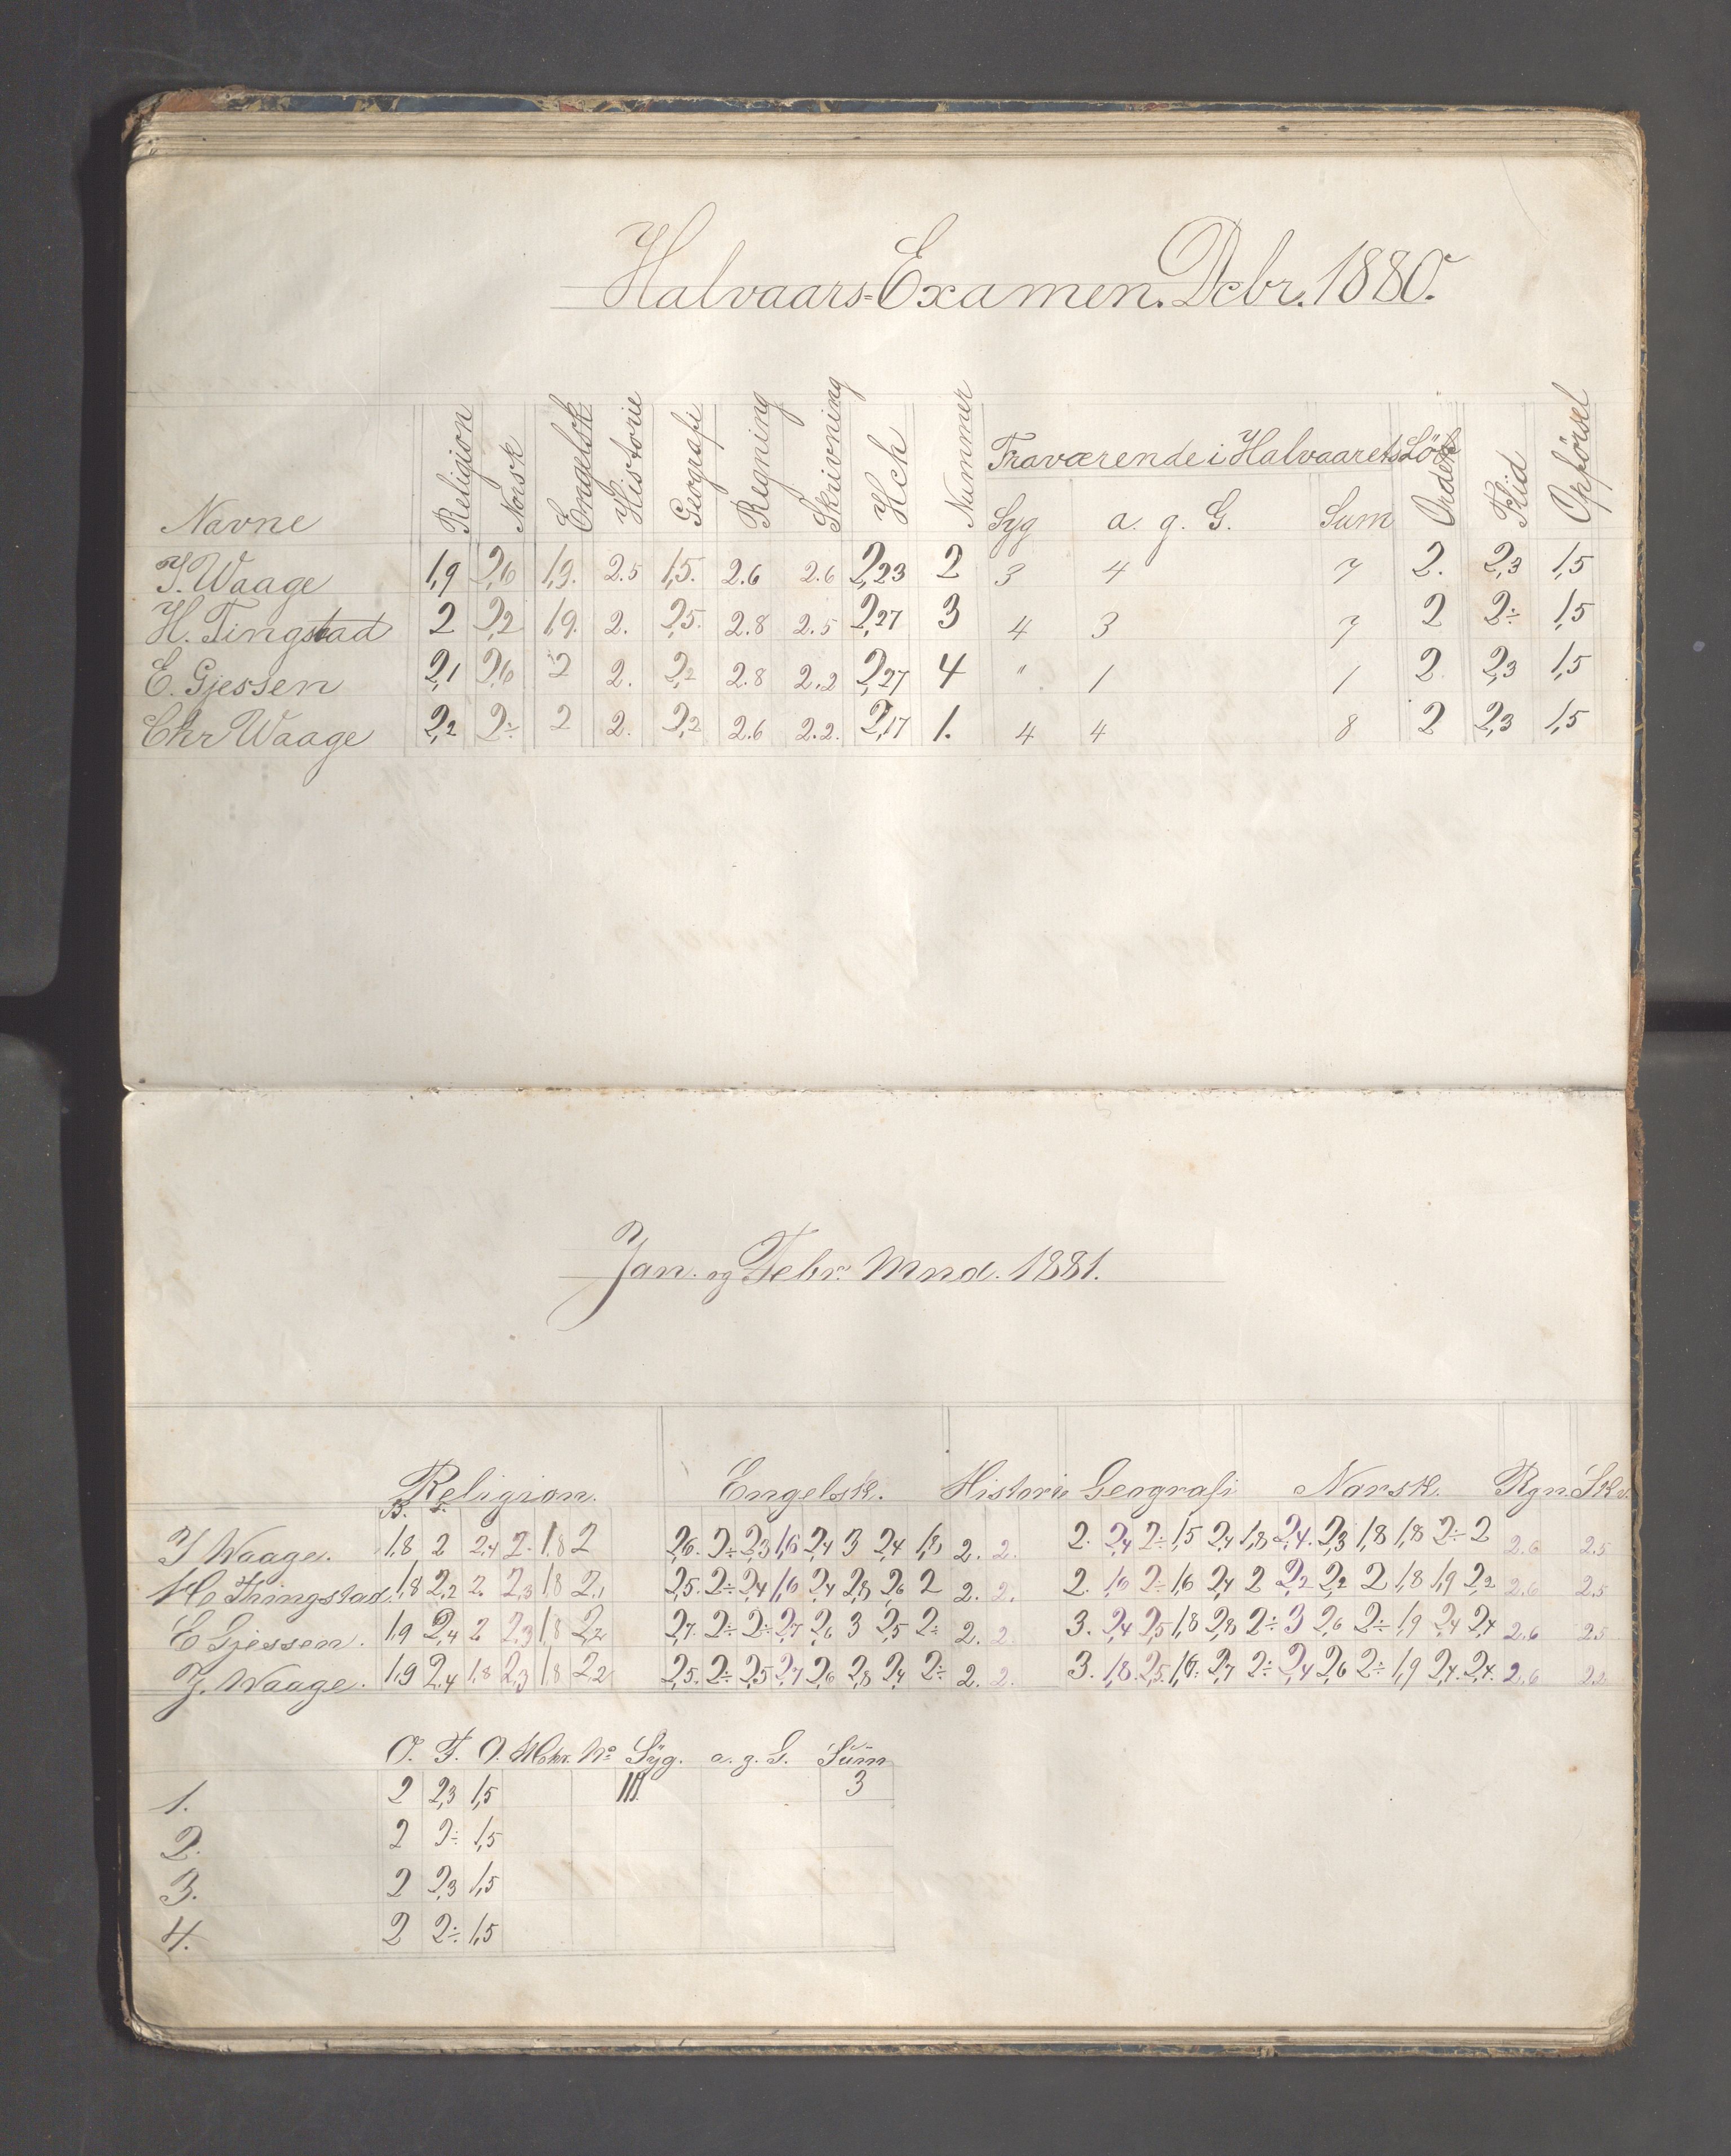 Halvaars=Examen. Decbr. 1880.
Navne Religion Norsk Engelsk Historie Geografi Regning Skrivning Hch Nummer Fraværende i Halvaarets Löb Syg a. g. G. Sum Orden Flid Opförsel
J. Waage 1,9 2,6 1,9. 2.5 1,5. 2.6 2.6 2,23 2 3 4 7 2. 2,3 1,5
H. Tingstad 2 2,2 1,9. 2. 2,5. 2.8 2.5 2,27 3 4 3 7 2 2÷ 1,5
E. Gjessen 2,1 2,6 2 2. 2,2 2.8 2.2 2,27 4 " 1 1 2 2,3 1,5
Chr Waage 2,2 2÷ 2 2. 2,2 2.6 2.2. 2,17 1. 4 4 8 2 2,3 1,5
Jan. og Febr. Mnd. 1881.
Religion. Engelsk. Historie Geografi Norsk. Rgn. Skr.
B.
J Waage. 1,8 2 2,4 2. 1,8 2 2,6. 2÷ 2,3 1,6 2,4 3 2,4 1,8 2. 2. 2. 2,4 2÷ 1,5 2,4 1,8 2,4. 2,3 1,8 1,8 2÷ 2 2.6 2.5
H Thingstad. 1,8 2,2 2 2,3 1,8 2,1 2,5. 2÷ 2,4 1,6 2,4 2,8 2,6 2 2. 2. 2. 1,6 2÷ 1,6 2,4 2 2,2 2,2 2 1,8 1,9 2,2 2.6 2.5
E Gjessen. 1,9 2,4 2 2,3 1,8 2,2 2,7. 2÷ 2÷ 2,7 2,6 3 2,5 2÷ 2. 2. 3. 2,4 2,5 1,8 2,8 2÷ 3 2,6 2÷ 1,9 2,4 2,4 2.6 2.5
J. Waage. 1,9 2,4 1,8 2,3 1,8 2,2 2,5. 2÷ 2,5 2,7 2,6 2,8 2,4 2÷ 2. 2. 3. 1,8. 2,5. 1,6. 2,7 2÷ 2,4 2,6 2÷ 1,9 2,4. 2,4. 2.6 2.2
O. F. O. Hchr. No Syg. a. g. G. Sum
1. 2 2,3 1,5 III 3
2. 2 2÷ 1,5
3. 2 2,3 1,5
4. 2 2÷ 1,5